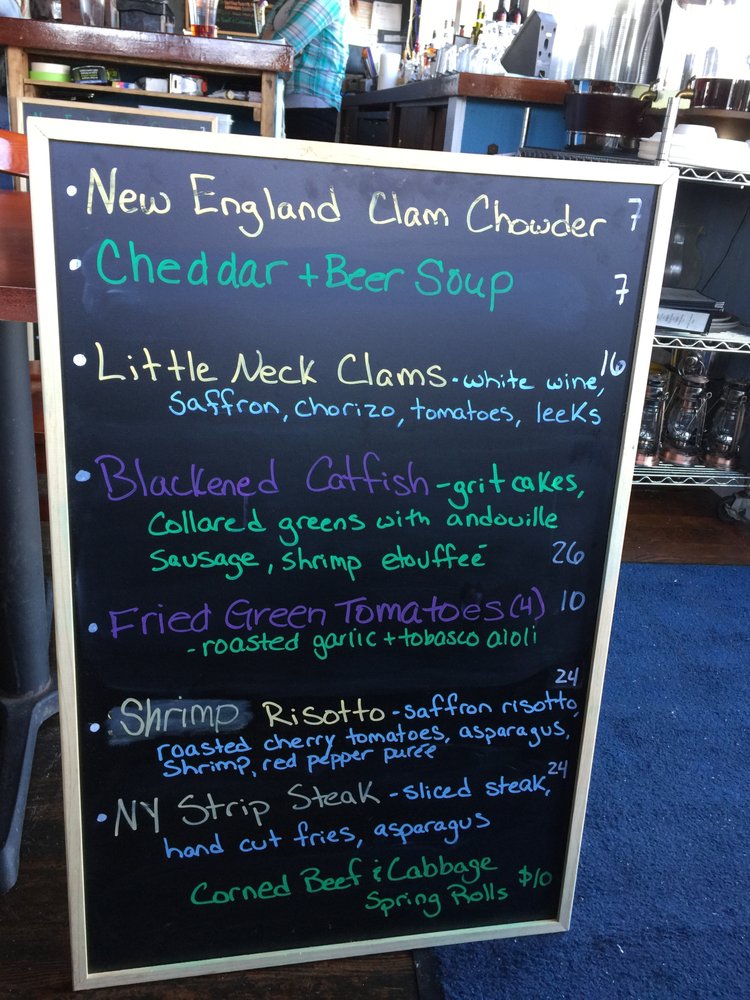 • New England Clam Chowder 7
• Cheddar + Beer Soup 7
• Little Neck Clams - white wine, 16
saffron, chorizo, tomatoes, leeks
• Blackened Catfish - grit cakes,
collared greens with andouille
sausage, shrimp etouffeé 26
• Fried Green Tomatoes (4) 10
- roasted garlic + tobasco aioli
• Shrimp Risotto - saffron risotto, 24
roasted cherry tomatoes, asparagus,
shrimp, red pepper purée
• NY Strip Steak - sliced steak, 24
hand cut fries, asparagus
Corned Beef & Cabbage
Spring Rolls $10